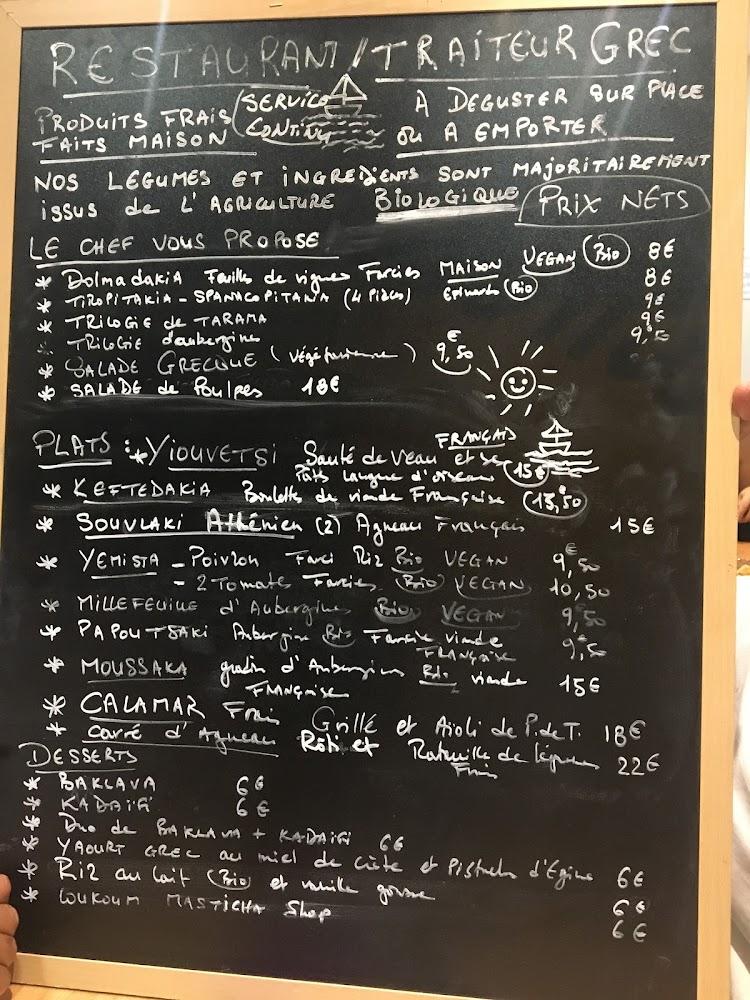 RESTAURANT / TRAITEUR GREC
PRODUITS FRAIS
FAITS MAISON
SERVICE
CONTINU
A DEGUSTER SUR PLACE
ou A EMPORTER
NOS LEGUMES ET INGREDIENTS SONT MAJORITAIREMENT
issus de L'AGRICULTURE BIOLOGIQUE
PRIX NETS
LE CHEF VOUS PROPOSE
* DOLMADAKIA Feuilles de vignes Farcies MAISON VEGAN Bio 8€
* TIROPITAKIA - SPANACOPITAKIA (4 Pièces) Epinards Bio 8€
* TRILOGIE de TARAMA 9€
TRILOGIE d'aubergine 9€
9,50
* SALADE GRECQUE (végétarienne) 9,50 €
* SALADE de Poulpes 18€
PLATS : * YIOUVETSI Sauté de veau FRANÇAIS et ses
Pâts langue d'oiseau 15€
* KEFTEDAKIA Boulettes de viande Française 13,50 €
* SOUVLAKI Athénien (2) Agneau Français 15€
* YEMISTA - Poivron Farci Riz Bio VEGAN 9,50 €
- 2 Tomates Farcies Bio VEGAN 10,50
* MILLEFEUILLE d'Aubergine Bio VEGAN 9,50
* PAPOUTSAKI Aubergine Bio Farcie viande
FRANÇAISE 9,50
* MOUSSAKA gratin d'Aubergines Bio viande
FRANÇAISE 15€
* CALAMAR Frais Grillé et Aïoli de P.de T. 18€
* Carré d'Agneau Rôti et Ratatouille de légumes
Frais 22€
DESSERTS
* BAKLAVA 6€
* KADAIFI 6€
* Duo de BAKLAVA + KADAIFI 6€
* YAOURT GREC au miel de Crète et Pistaches d'Egine 6€
* Riz au lait Bio et vanille gousse 6€
* LOUKOUM MASTICHA Shop 6€